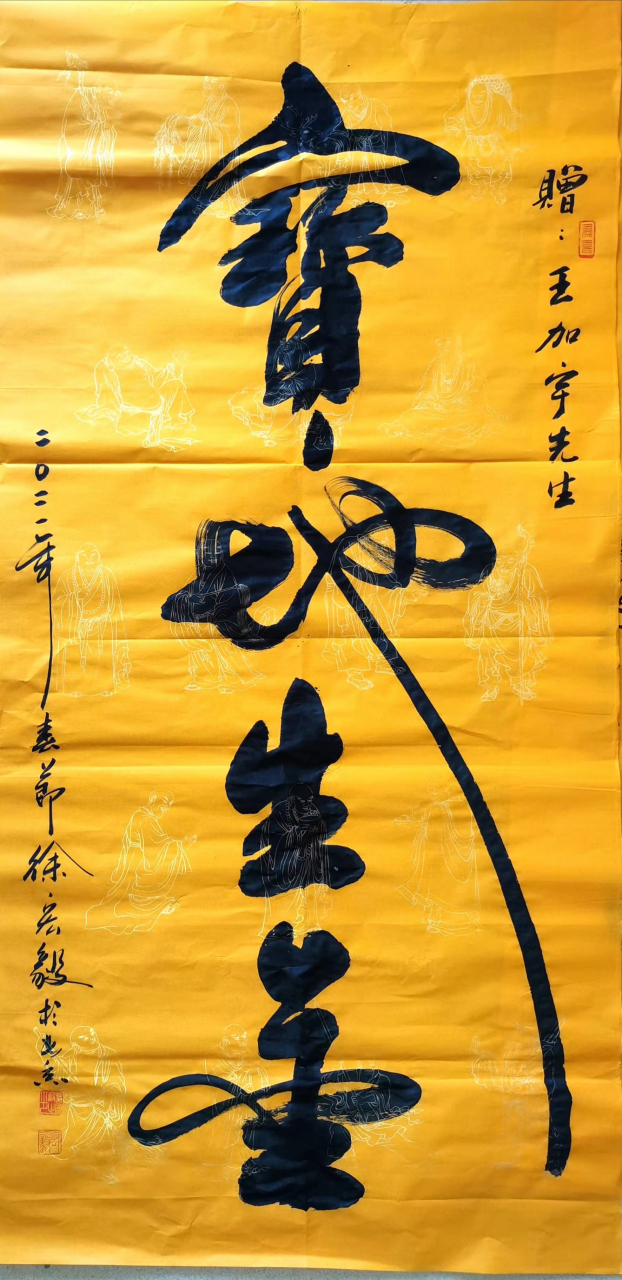 贈：王加宇先生
寶地生金
二0二二年春節徐宏毅於北京